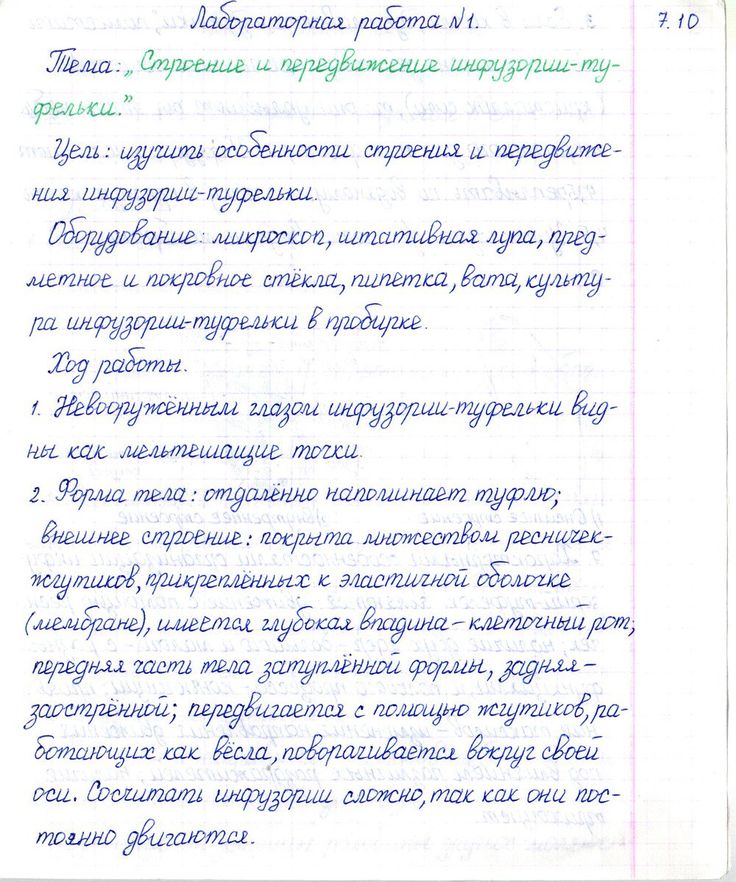 Лабораторная работа №1. 7.10
Тема: „Строение и передвижение инфузории-ту-
фельки."
Цель: изучить особенности строения и передвиже-
ния инфузории-туфельки.
Оборудование: микроскоп, штативная лупа, пред-
метное и покровное стёкла, пипетка, вата, культу-
ра инфузории-туфельки в пробирке.
Ход работы.
1. Невооружённым глазом инфузории-туфельки вид-
ны как мельтешащие точки.
2. Форма тела: отдалённо напоминает туфлю;
внешнее строение: покрыта множеством ресничек-
жгутиков, прикреплённых к эластичной оболочке
(мембране), имеется глубокая впадина – клеточный рот;
передняя часть тела затуплённой формы, задняя –
заострённой; передвигается с помощью жгутиков, ра-
ботающих как вёсла, поворачивается вокруг своей
оси. Сосчитать инфузории сложно, так как они пос-
тоянно двигаются.